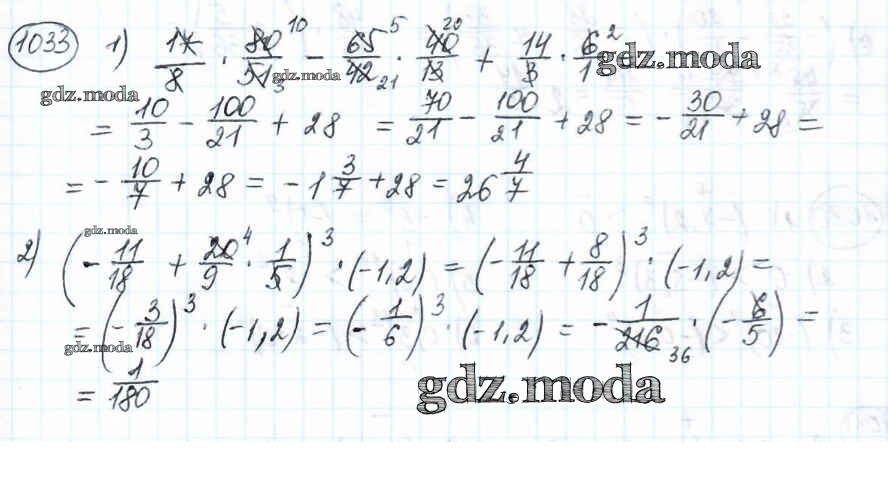 1033 1) 17/8 · 80/51 ³ ¹⁰ − 65/42 ²¹ ⁵ · 40/13 ²⁰ + 14/3 · 6/1 ² =
gdz.moda gdz.moda gdz.moda
= 10/3 − 100/21 + 28 = 70/21 − 100/21 + 28 = − 30/21 + 28 =
= − 10/7 + 28 = −1 3/7 + 28 = 26 4/7
gdz.moda
2) (− 11/18 + 20/9 ⁴ · 1/5)³ · (−1,2) = (− 11/18 + 8/18)³ · (−1,2) =
= (− 3/18)³ · (−1,2) = (− 1/6)³ · (−1,2) = − 1/216 ₃₆ · (− 6/5) =
gdz.moda
= 1/180
gdz.moda